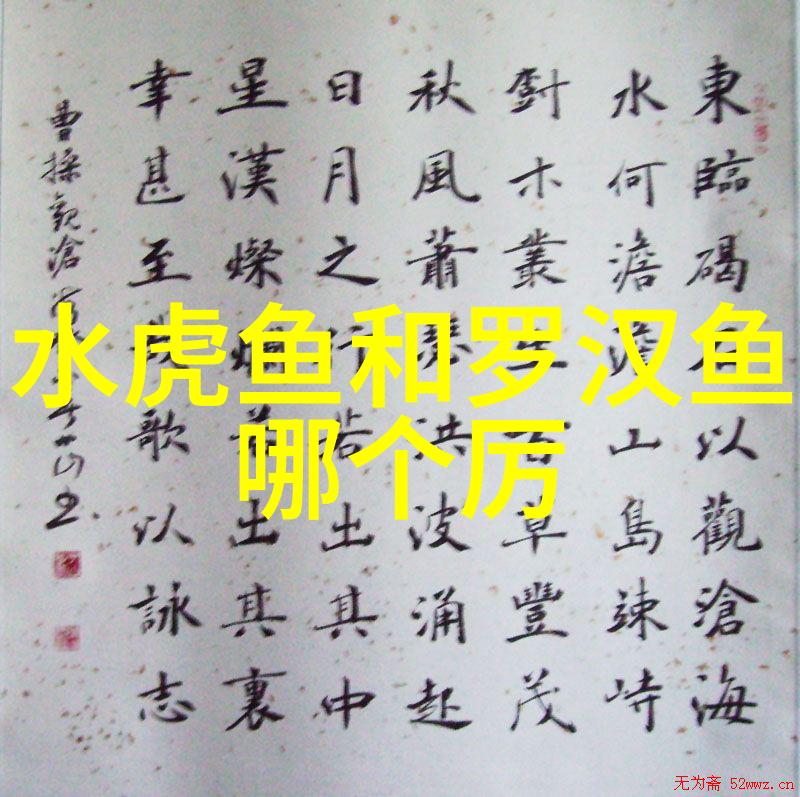 水虎鱼和罗汉鱼
哪个厉
東臨碣石以觀滄海
水何澹澹山島竦峙
木叢生百草豐茂
秋風蕭瑟洪波涌起
日月之行若出其中
星漢燦爛若出其裏
幸甚至哉歌以詠志
曹操觀滄
无为斋 52wwz.cn